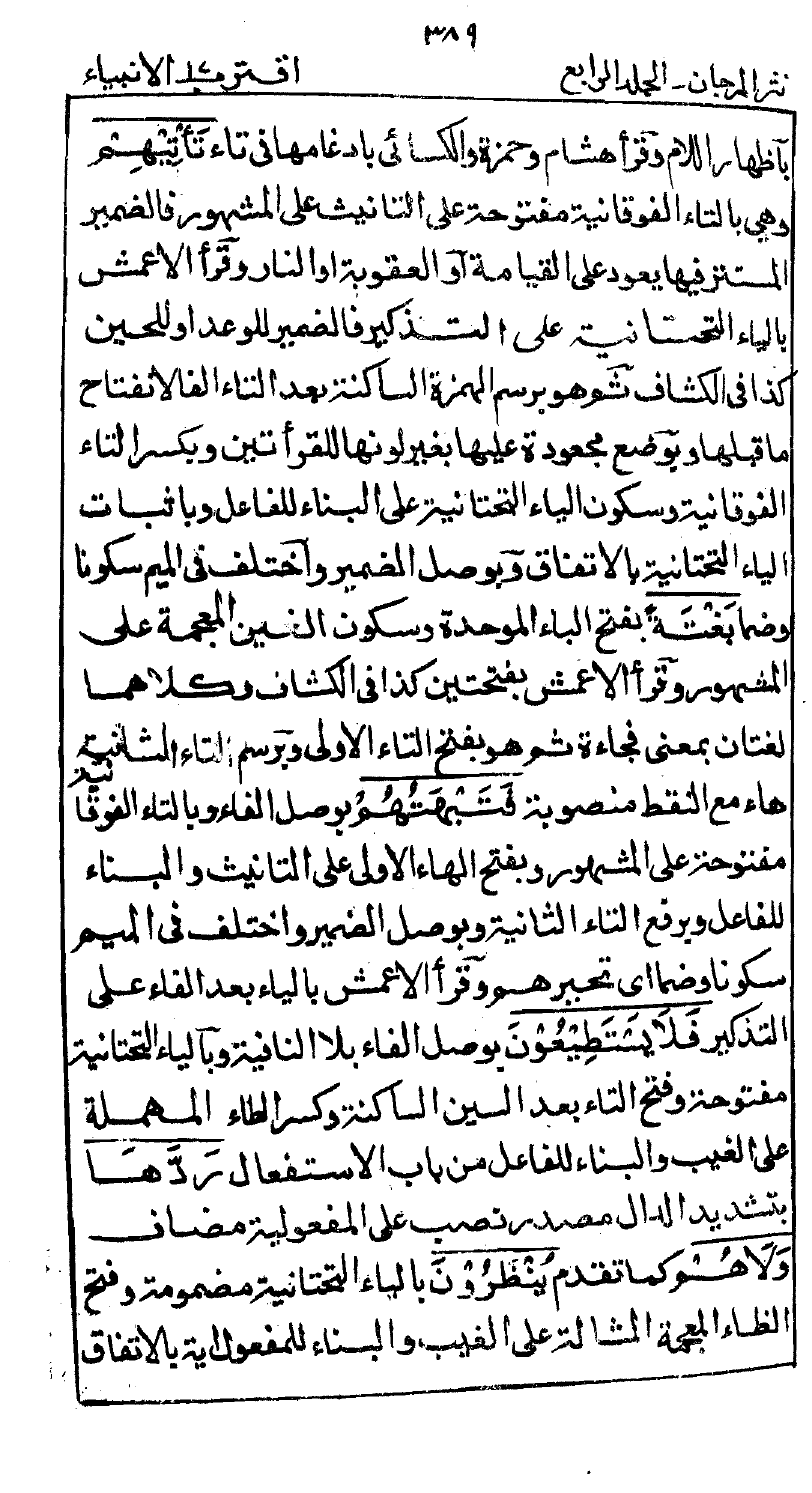 ٣٨٩
نثر المرجان - المجلد الرابع
اقترب ١٧ الانبياء
بآظهار اللام وقرأ هشام وحمزة والكسائى بادغامها فى تاء تَأْتِيْهِمْ
وهي بالتاء الفوقانية مفتوحة على التانيث على المشهور فالضمير
المستتر فيها يعود على القيامة آو العقوبة او النار وقرأ الاعمش
بالياء التحتانية على التذكير فالضمير للوعد او للحين
كذا فى الكشاف ثم هو برسم الهمزة الساكنة بعد التاء الفا لانفتاح
ما قبلها وتوضع مجعودة عليها بغير لونها للقرأتين وبكسر التاء
الفوقانية وسكون الياء التحتانية على البناء للفاعل وباثبات
الياء التحتانية بالاتفاق وبوصل الضمير واختلف فى الميم سكونا
وضما بَغْتَةً بفتح الباء الموحدة وسكون الغين المعجمة على
المشهور وقرأ الاعمش بفتحتين كذا فى الكشاف وكلاهما
لغتان بمعنى فجاءة ثم هو بفتح التاء الاولى وبرسم التاء الثانية
هاء مع النقط منصوبة فَتَبْهَتُهُمْ بوصل الفاء وبالتاء الفوقانية
مفتوحة على المشهور وبفتح الهاء الاولى على التانيث والبناء
للفاعل وبرفع التاء الثانية وبوصل الضمير واختلف فى الميم
سكونا وضما اى تحيرهم وقرأ الاعمش بالياء بعد الفاء على
التذكير فَلَا يَسْتَطِيْعُوْنَ بوصل الفاء بلا النافية وبالياء التحتانية
مفتوحة وفتح التاء بعد السين الساكنة وكسر الطاء المهملة
على الغيب والبناء للفاعل من باب الاستفعال رَدَّهَا
بتشديد الدال مصدر نصب على المفعولية مضاف
وَلَا هُمْ كما تقدم يُنْظَرُوْنَ بالياء التحتانية مضمومة وفتح
الظاء المعجمة المشالة على الغيب والبناء للمفعول اية بالاتفاق